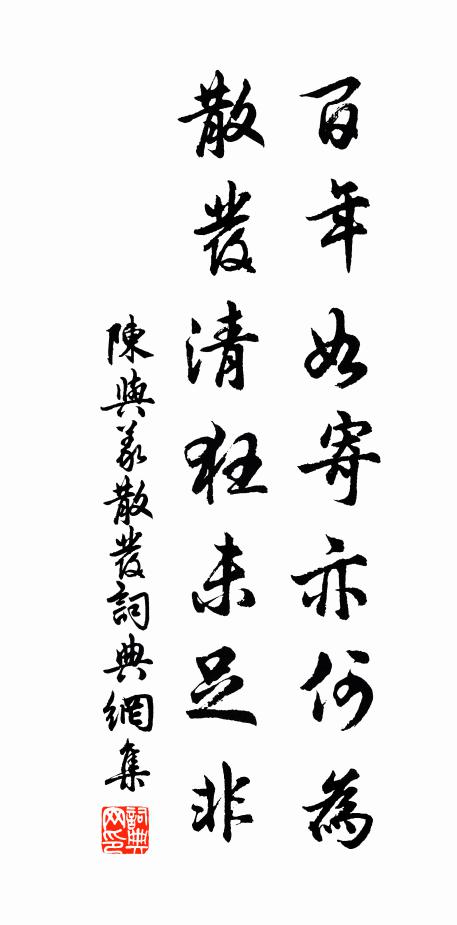 百年如寄亦何為
散發清狂未足非
陳與義散發詞典網集
詞典网印